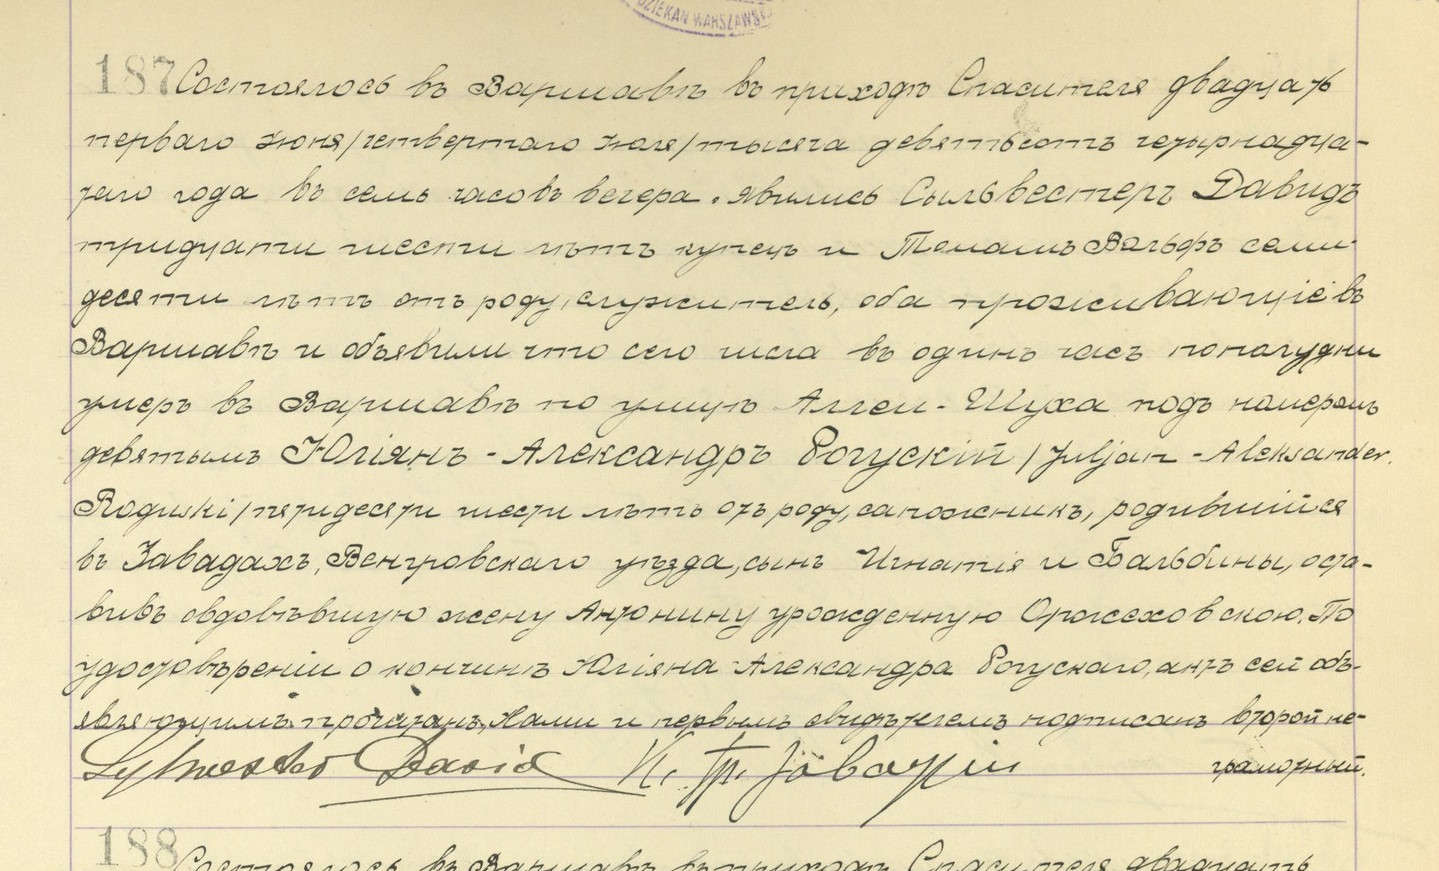 DZIEKAN WARSZAWSKI
187 Состоялось въ Варшавѣ въ приходѣ Спасителя двадцать
перваго Іюня/четвертаго Іюля/тысяча девятьсотъ четырнадца-
таго года въ семь часовъ вечера. Явились Сыльвестеръ Давидъ
тридцати шести лѣтъ купецъ и Томашъ Вольфъ семи-
десяти лѣтъ отъ роду, служитель, оба проживающіе въ
Варшавѣ и объявили что сего числа въ одинъ часъ пополудни
умеръ въ Варшавѣ по улицѣ Аллеи-Шуха подъ номеромъ
девятымъ Юліянъ-Александръ Рогускій/Juljan-Aleksander
Roguski/пятидесяти шести лѣтъ отъ роду, сапожникъ, родившійся
въ Завадахъ, Венгровскаго уѣзда, сынъ Игнатія и Бальбины, оста-
вивъ овдовѣвшую жену Антонину урожденную Оржеховскою. По
удостовѣреніи о кончинѣ Юліяна-Александра Рогускаго, актъ сей объ-
являющимъ прочитанъ, Нами и первымъ свидѣтелемъ подписанъ второй не-
грамотный.
Sylwester Dawid
188 Состоялось въ Варшавѣ въ приходѣ Спасителя двадцать